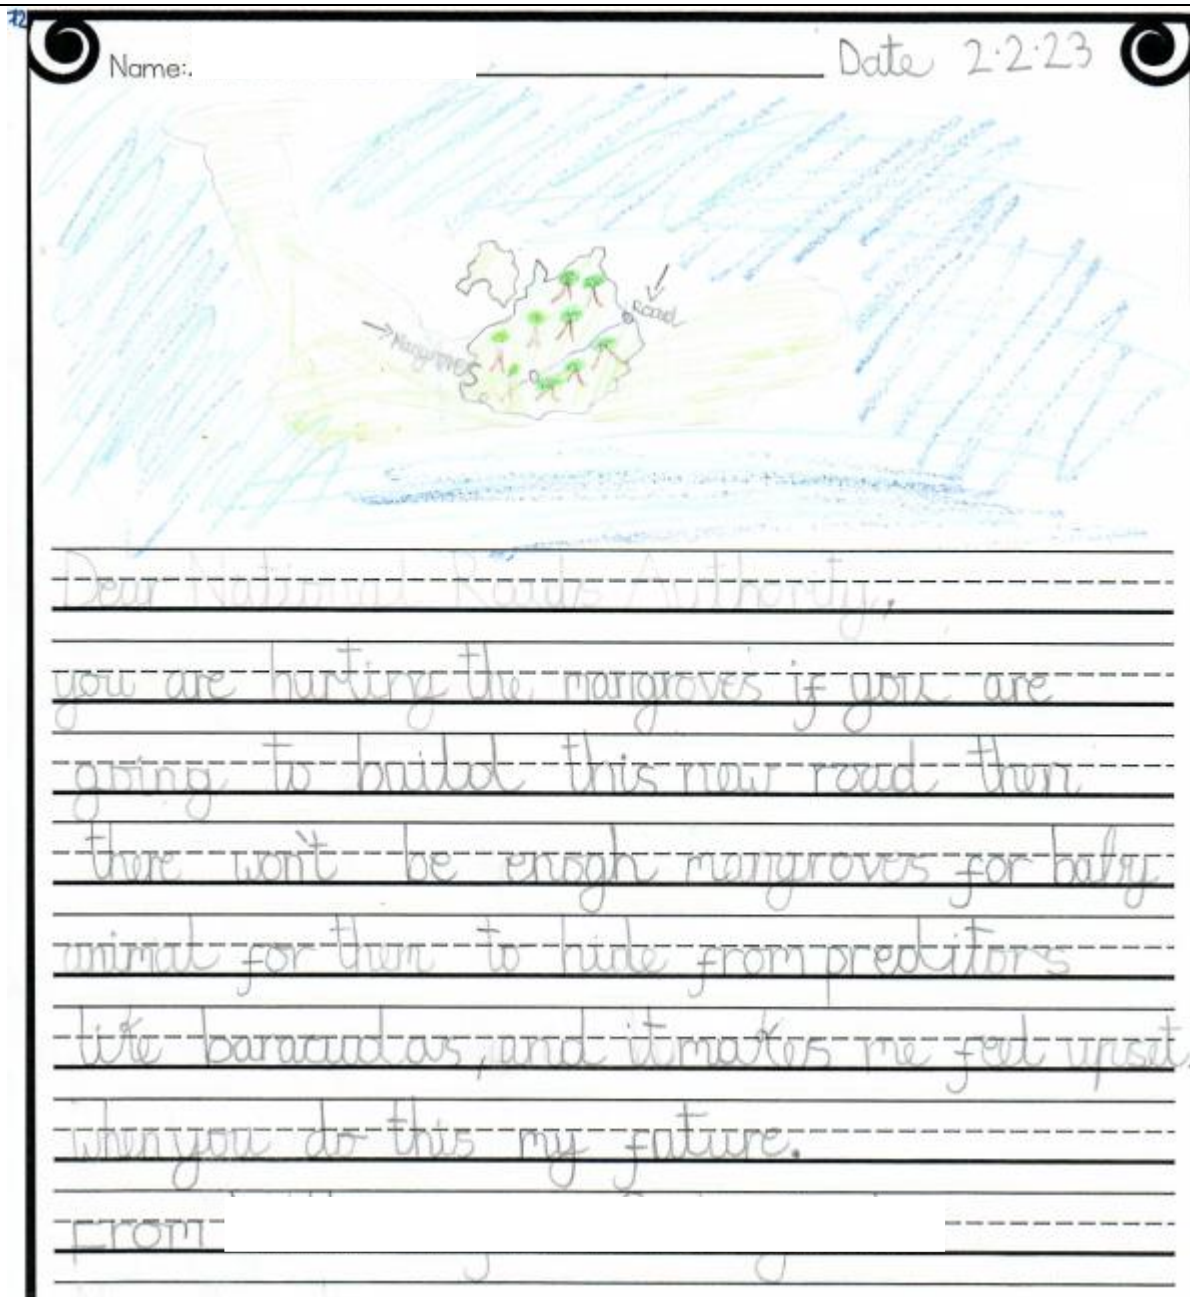 Name:
Date 2.2.23
Road
Mangroves
Dear National Roads Authority,
you are hurting the mangroves if you are
going to build this new road then
there won't be enogh mangroves for baby
animal for them to hide from preditors
like baracudas, and it makes me feel upset
when you do this my future.
From